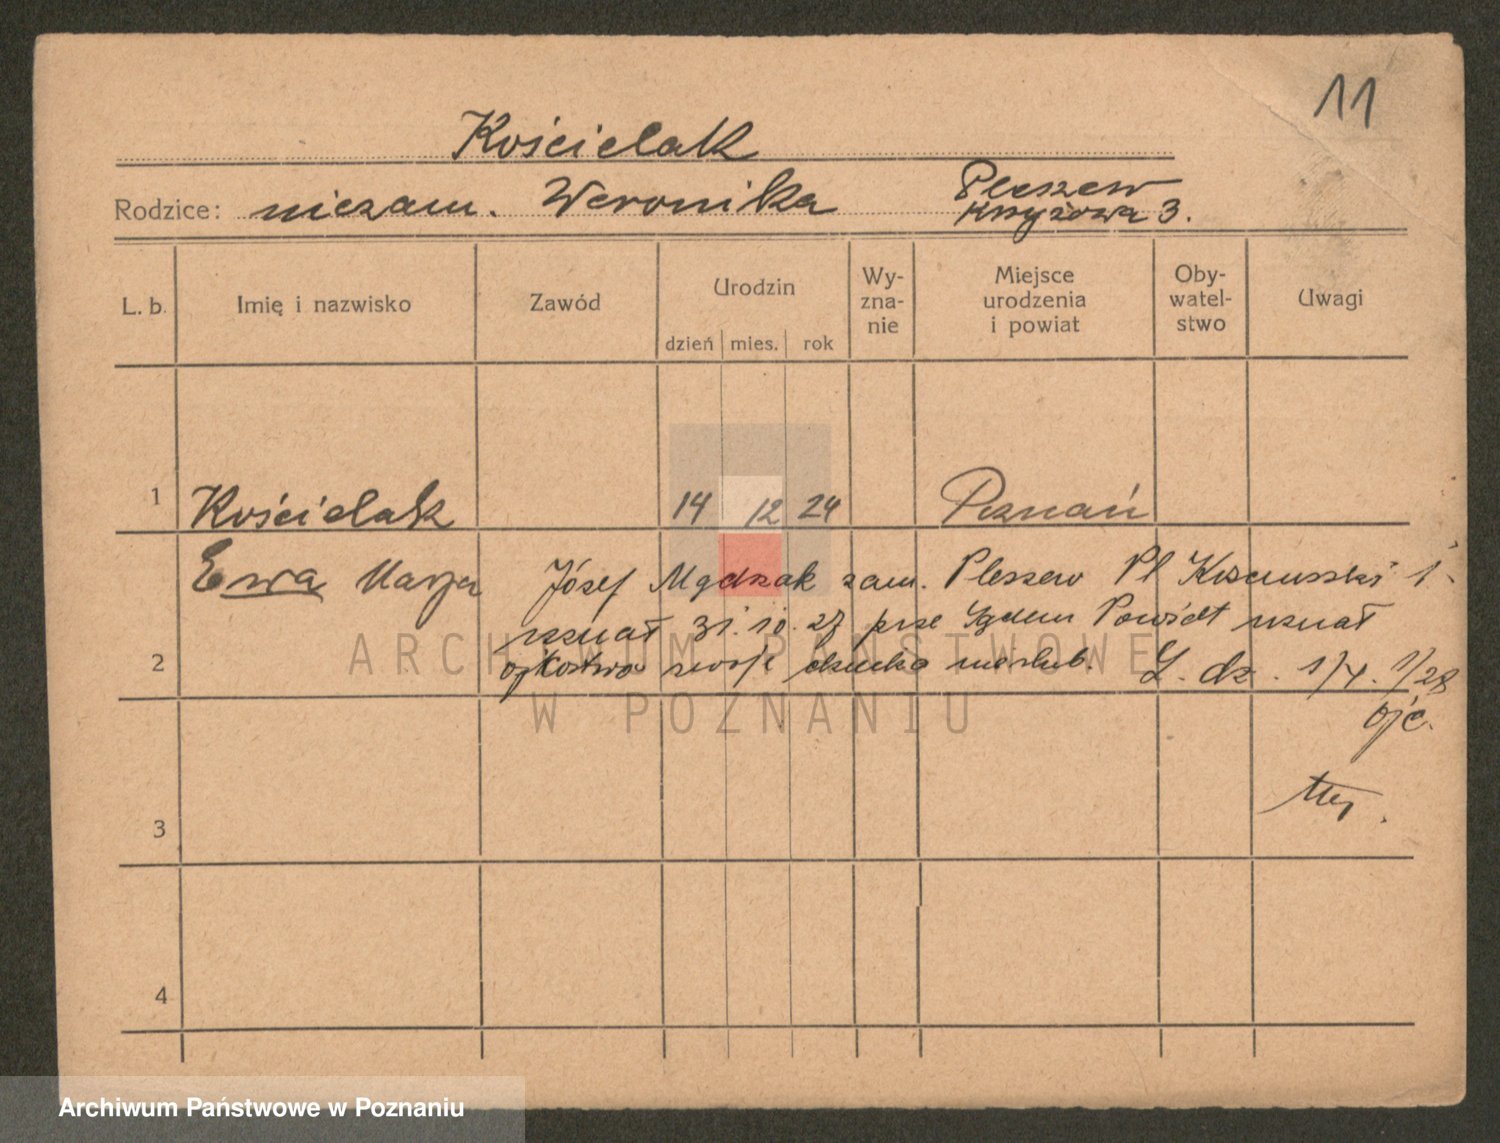 11
Kościelak
Rodzice: niezam. Weronika
Pleszew
Krzyżowa 3.
L. b. Imię i nazwisko Zawód Urodzin dzień mies. rok Wy-zna-nie Miejsce urodzenia i powiat Oby-watel-stwo Uwagi
1 Kościelak 14 12 24 Poznań
Ewa Marja Józef zam. Pleszew Pl 1
uznał 31. 10. 27 Powiat uznał
2 ojcostwo swoje dziecka nieślub. L. dz. 1/28
ojc.
3
4
ARCHIWUM PAŃSTWOWE
W POZNANIU
Archiwum Państwowe w Poznaniu